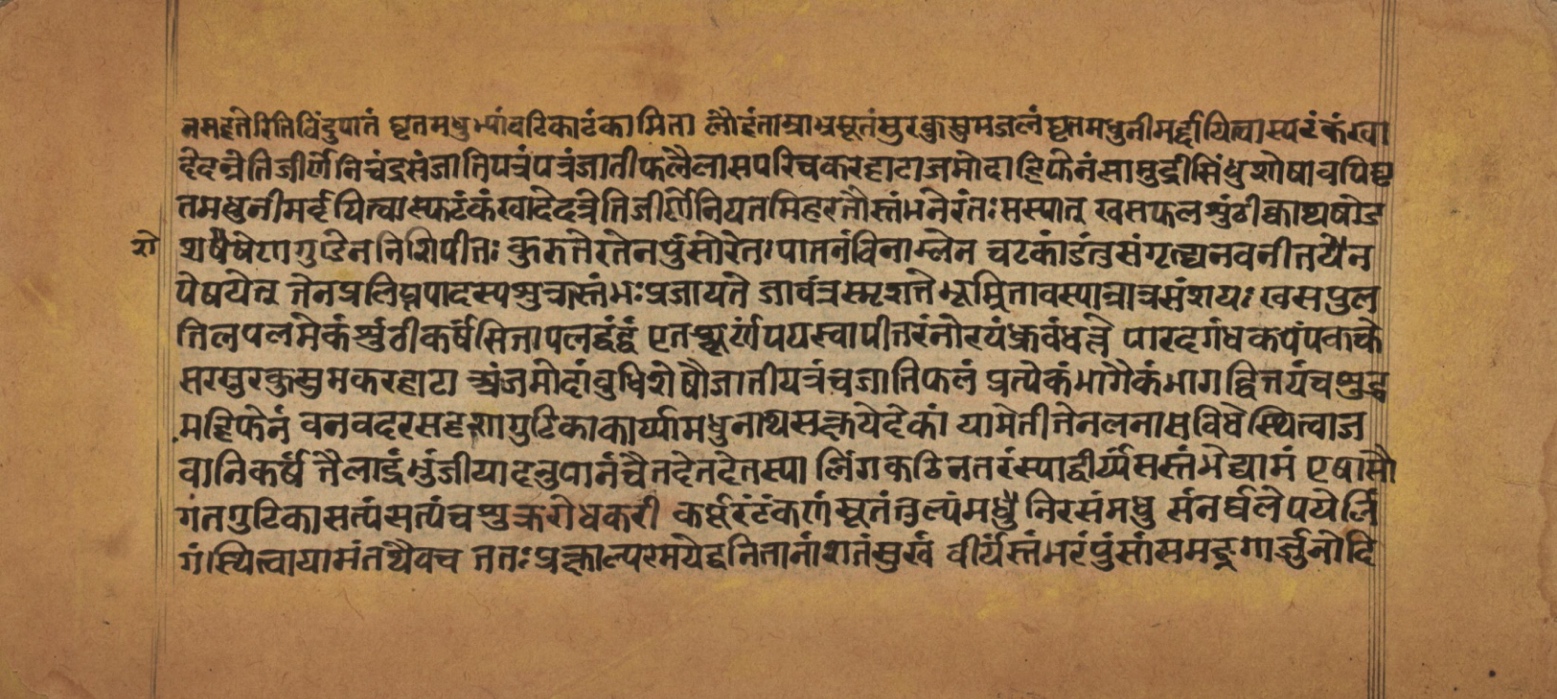 नमहतेरितिविंदुपातं घृतमधुभ्यांवटिकाटंकामिता लौहंताम्राभ्रसूतंसुरकुसुमजलंघृतमधुनीमर्द्दयित्वास्परंकंखा
देदन्नेतिजीर्णेनिचंद्रसंजातिपत्रंपत्रंजातीफलैलासपरिचकरहाटाजमोदाहिफेनंसामुद्रीसिंधुशोषावपिघृ
तमधुनीमर्द्दयित्वास्फटंकंखादेदन्नेतिजीर्णेनियतमिहरतौस्तंभनेरंतःसस्पात् खसफलशुंठीक्वाथषोड
शो
शषैषेणगुडेननिशिपीतः कुरुतेरतेनपुंसोरेतःपातनंविनाम्लेन चटकांडंतुसंगृह्यनवनीतयैन
पेषयेत् तेनप्रलिप्तपादस्पशुक्रस्तंभःप्रजायते जावंन्नस्पृशतेभूमितावस्पान्नात्रसंशयः खसपुल
तिलपलमेकंशुंठीकर्षंसितापलद्वंद्वं एतच्चूर्णंपपस्वापीतरंनोरयंध्रुवंधत्ते पारदगंधकपंपकके
सरसुरकुसुमकरहाटा श्चंजमोदांबुधिशोषौजातीयत्रंचजातिफलं प्रत्येकंभागैकंभागद्वितयंचशुद्ध
महिफेनं वनवदरसदृशागुटिकाकार्य्यामधुनाथसह्नयेदेकां यामेतीतेनलनासविधेस्थित्वाज
वानिकर्षं तैलाद्रंभुंजीयादनुपानंचैतदेतदेतस्पा लिंगकठिनतरंस्पाद्वीर्य्यंसस्तंभेद्यामं एषासौ
गंतगुटिकासत्पंसत्पंचशुक्ररोधकरी कर्पूरंटंकणंसूतंतुल्पंमधुौनिरसंमधु संनर्धलेपयेर्लि
गंस्थित्वायामंतथैवच ततःप्रक्षाल्परमयेद्वनितानांशतंसुखं वीर्यस्तंभरंपुंसांसमङ्गुगार्ज्जुनोदि